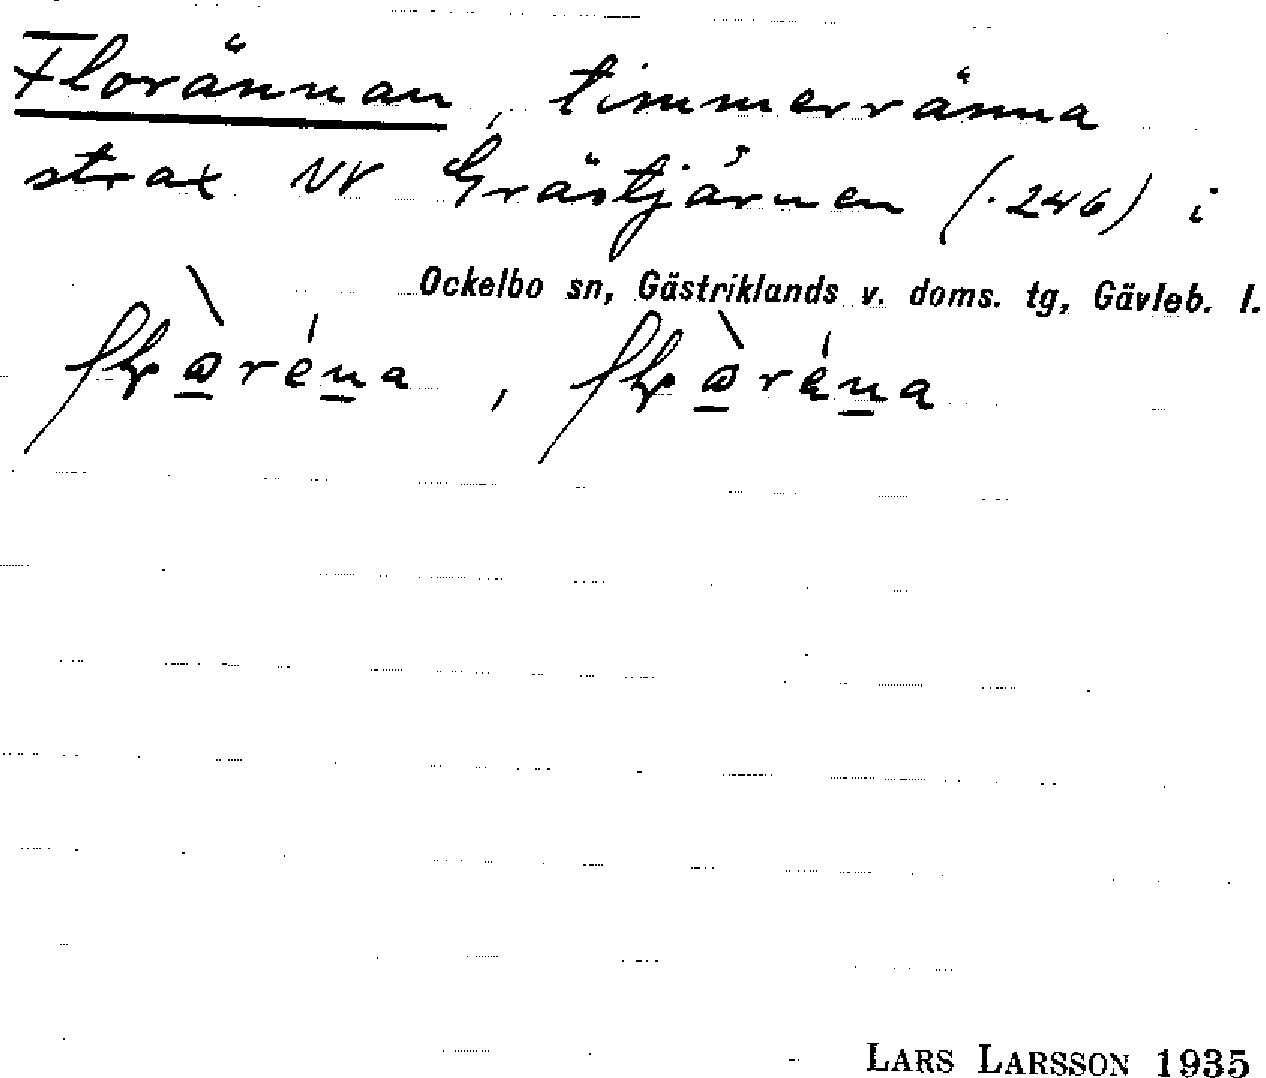 Florännan, timmerränna
strax NV Grästjärnen (.246) i
Ockelbo sn, Gästriklands v. doms. tg, Gävleb. l.
LARS LARSSON 1935